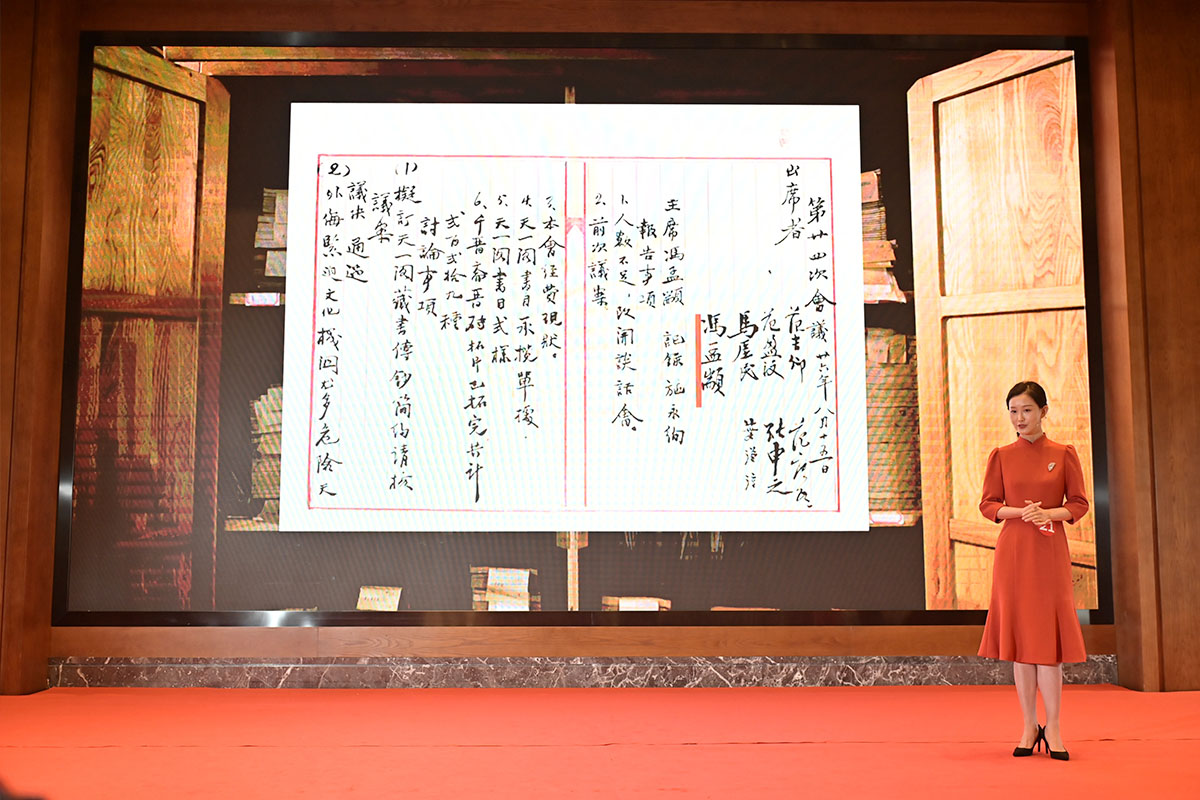 第廿四次會議 廿六年八月十五日
出席者
范吉卿
范盈汶
馬涯民
張申之
馮孟顓
主席馮孟顓 記錄施永絢
報告事項
1.人數不足，改開談話會。
2.前次議案
3.本會經費現狀。
4.天一閣書目承攬單據.
5.天一閣書目式樣
6.千晉齋晉磚拓片已拓完共計
弍百弍拾九種
討論事項
(1)擬訂天一閣藏書傳鈔簡約請核
議案
議決 通過
(2)外海緊迫文化機關尤多危險天